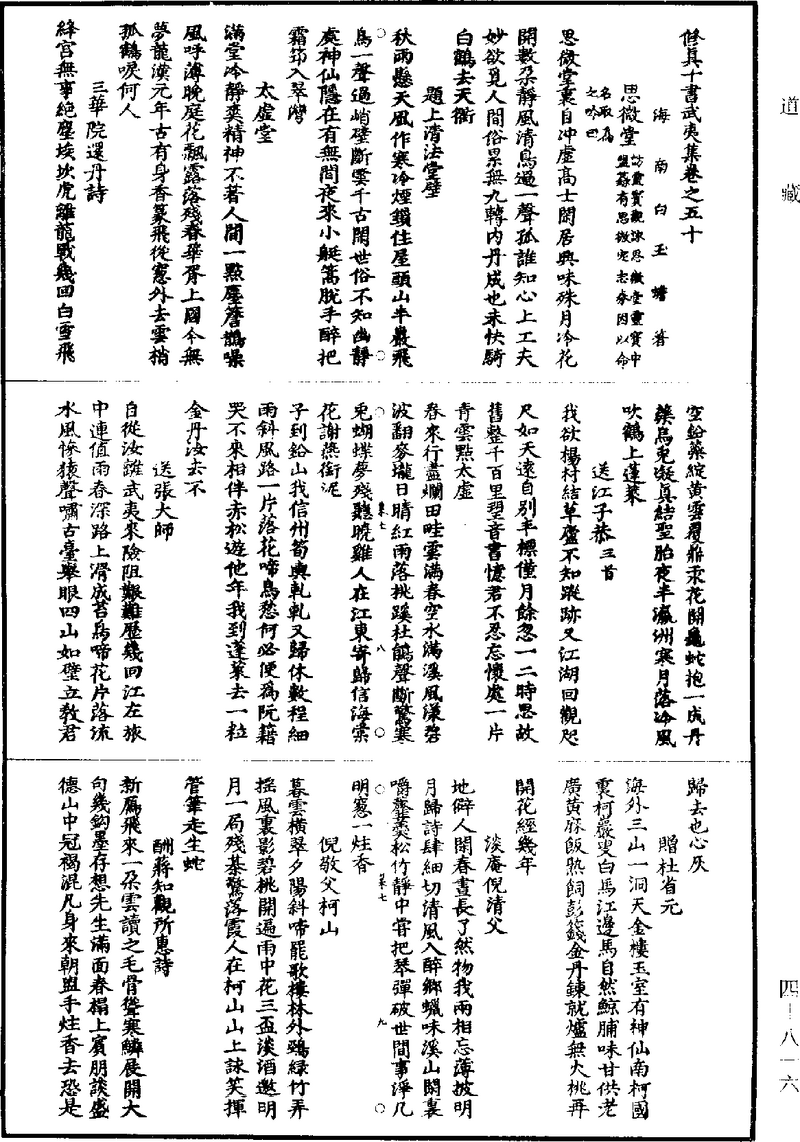 道藏
修真十書武夷集卷之五十
海南白玉蟾著
思微堂
訪靈寶觀詠思微堂靈寶中
盟蓁有思微定志券因以命
名取為
之吟巴
思微堂裏自沖虛高士閑居興味殊月冷花
開數朵靜風清鳥過一聲孤誰知心上工夫
妙欲覓人間俗累無九轉內丹成也未快騎
白鶴去天衢
題上清法堂壁
秋雨懸天風作寒冷煙鎖住屋頭山半巖飛
鳥一聲過峭壁斷雲千古閑世俗不知幽靜
處神仙隱在有無間夜來小艇篙脫手醉把
霜笻入翠灣
太虛堂
滿堂冷靜奕精神不著人間一點塵簷鵲噪
風呼薄晚庭花飄露落殘春華胥上國今無
夢龍漢元年古有身香篆飛從窓外去雲梢
孤鶴唳何人
三華院還丹詩
絳宮無事絶塵埃坎虎離龍戰幾回白雪飛
空鉛蘂綻黃雲覆鼎汞花開龜蛇抱一成丹
藥烏兎凝真結聖胎夜半瀛洲寒月落冷風
吹鶴上蓬萊
送江子恭三首
我欲楊村結草廬不知蹤跡又江湖回觀咫
尺如天遠自別半標僅月餘忽一二時思故
舊整千百里望音書憶君不忍忘懷處一片
青雲點太虛
春來行盡爛田畦雲滿春空水滿溪風漾碧
波翻麥壠日晴紅雨落桃蹊杜鵑聲斷驚寒
兎蝴蝶夢殘聽曉雞人在江東寄歸信海棠
花謝燕銜泥
子到鉛山我信州筍輿軋軋又歸休數程細
雨斜風路一片落花啼鳥愁何必便為阮籍
哭不來相伴赤松遊他年我到蓬萊去一粒
金丹汝去不
送張大師
自從汝離武夷來險阻艱難歷幾回江左旅
中連值雨春深路上滑成苔鳥啼花片落流
水風慘猿聲嘯古臺舉眼四山如壁立教君
歸去也心灰
贈杜省元
海外三山一洞天金樓玉室有神仙南柯國
裏柯巖叟白馬江邊馬自然鯨脯味甘供老
廣黃麻飯熟飼彭籛金丹鍊就爐無火桃再
開花經幾年
淡庵倪清父
地僻人閑春晝長了然物我兩相忘薄披明
月歸詩肆細切清風入醉鄉蠟味溪山閑裏
嚼虀羹松竹靜中嘗把琴彈破世間事淨几
明窓一炷香
倪敬父柯山
暮雲橫翠夕陽斜啼罷歌樓林外鴉綠竹弄
搖風裏影碧桃開遍雨中花三盃淡酒邀明
月一局殘棊驚落霞人在柯山山上詠笑揮
管筆走生蛇
酬蔣知觀所惠詩
新篇飛來一朵雲讀之毛骨聳寒鱗展開大
句幾鈎墨存想先生滿面春榻上賓朋談盛
德山中冠褐混凡身來朝盥手炷香去恐是
某七　八
某七　九
四—八一六